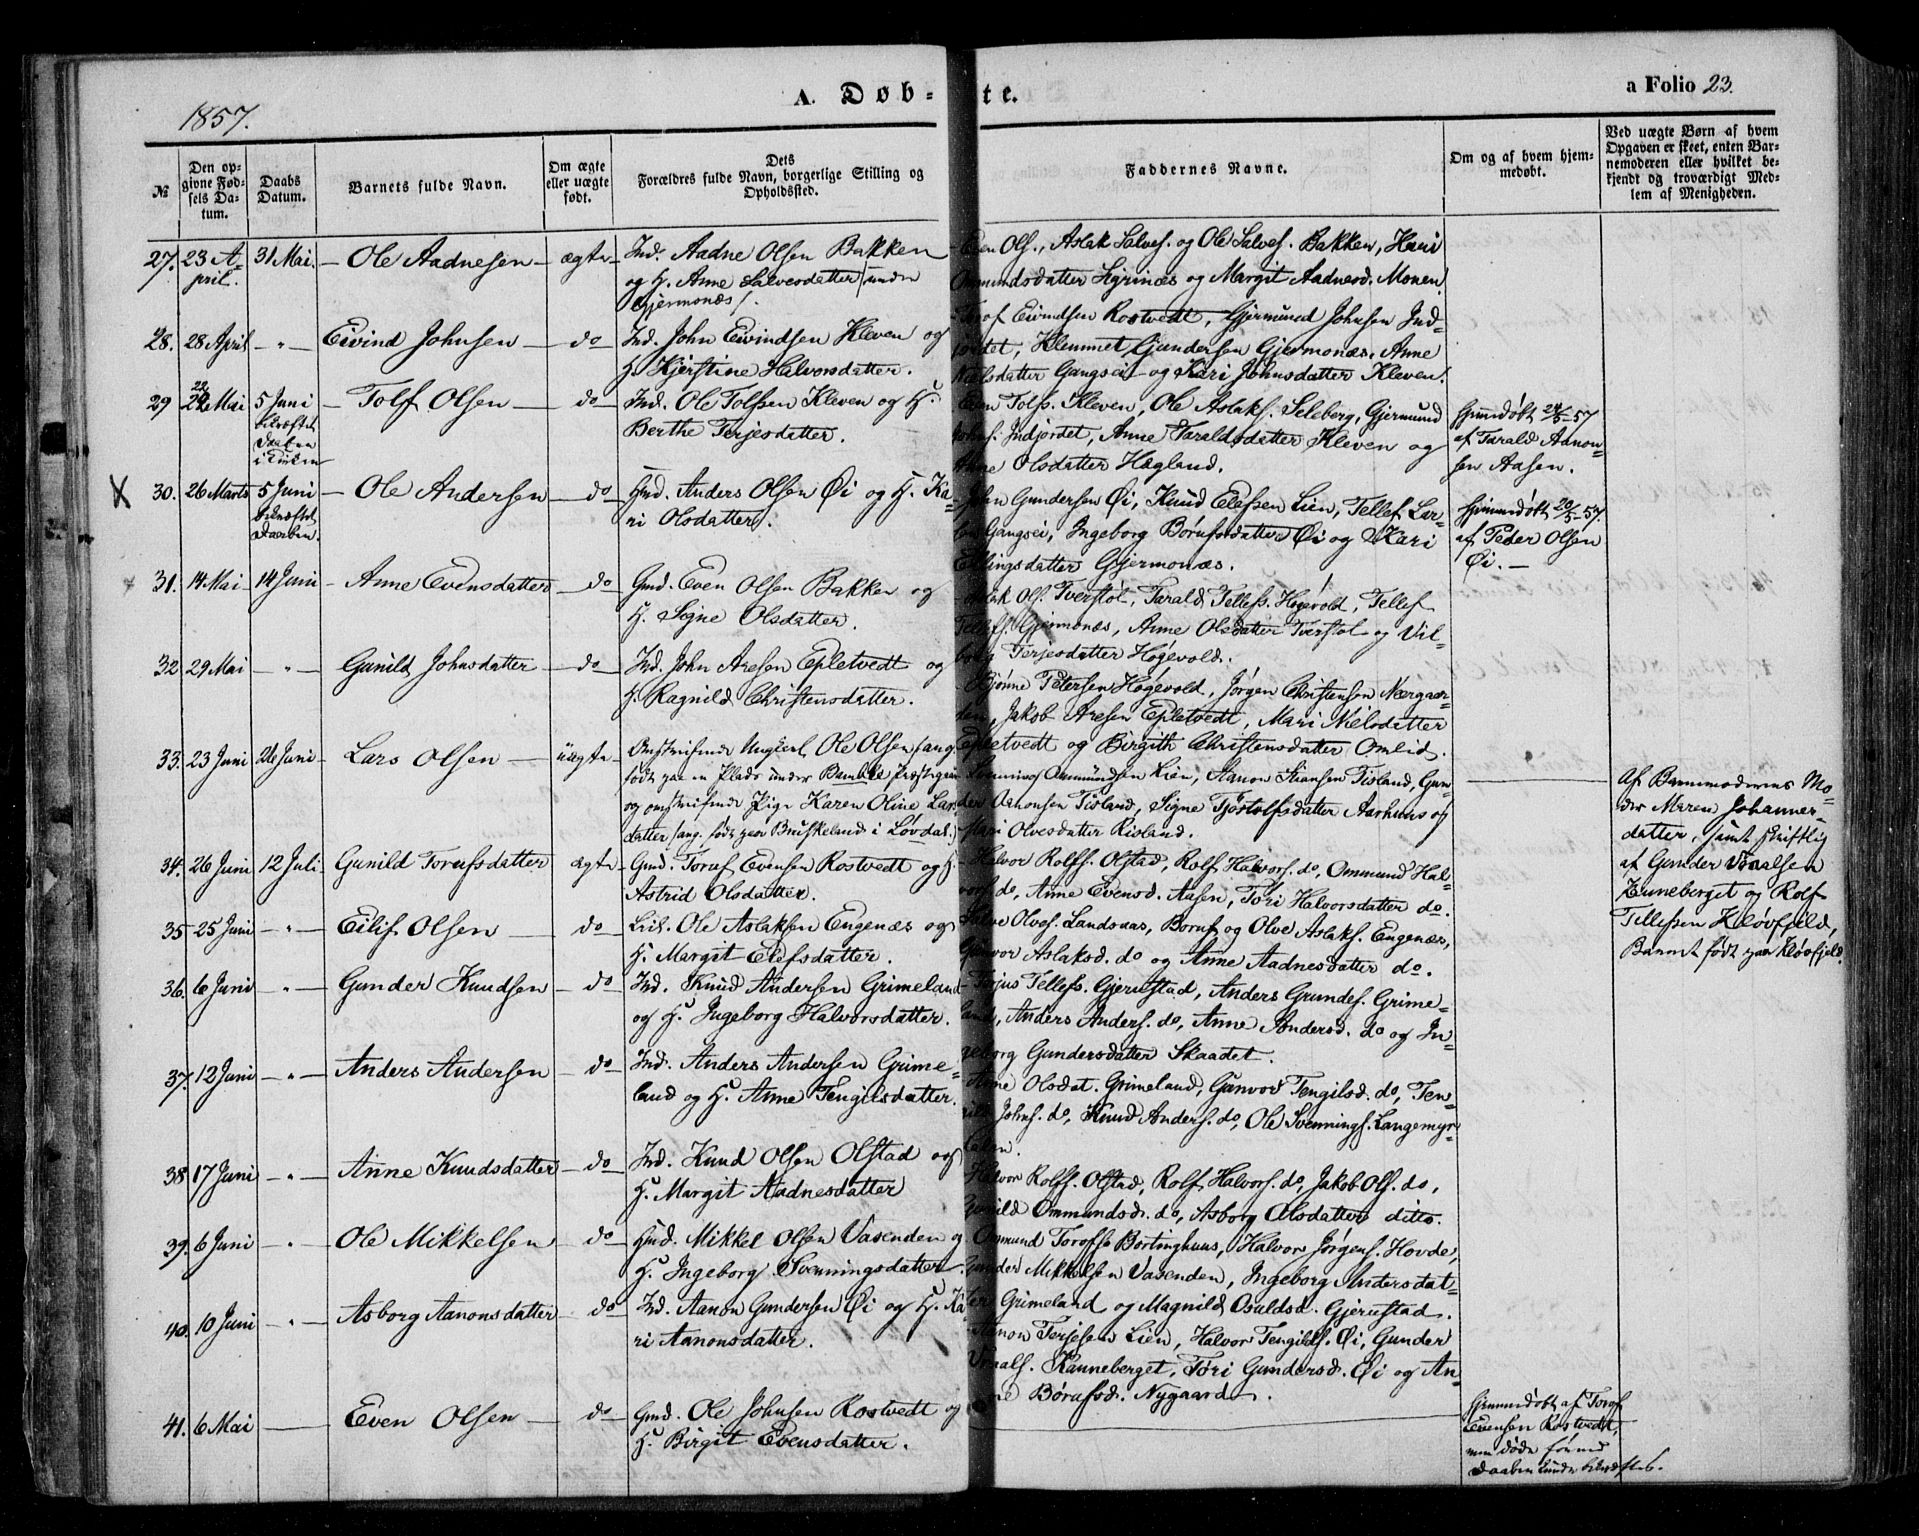 1857.
A. Døb-te.
a Folio 23.
№
Den op-
givne Fød-
sels Da-
tum.
Daabs
Datum.
Barnets fulde Navn.
Om ægte
eller uægte
født.
Dets
Forældres fulde Navn, borgerlige Stilling og
Opholdssted.
Faddernes Navne.
Om og af hvem hjem-
medøbt.
Ved uægte Børn af hvem
Opgaven er skeet, enten Bar-
nemoderen eller hvilket be-
kjendt og troværdigt Med-
lem af Menigheden.
27. 23 A-
pril.
31 Mai.
Ole Aadnesen
ægte
Ind. Aadne Olsen Bakken
og H. Anne Salvesdatter /under
Gjermonæs/.
Even Ols., Aslak Salves. og Ole Salves. Bakken, Kari
Ommundsdatter Hyrinæs og Margit Aadnesd. Monen.
28. 28 April
Eivind Johnsen
do
Ind. John Eivindsen Kleven og
H. Kjerstine Halvorsdatter.
Torof Eivindsen Rostvedt, Gjermund Johnsen Ind-
jordet, Klemmet Gundersen Gjermonæs, Anne
Nielsdatter Gangsei og Kari Johnsdatter Kleven.
29 22 Mai
5 Juni
bekræftet
Daaben
i Kirken
Tolf Olsen
do
Ind. Ole Tolfsen Kleven og H.
Berthe Terjesdatter.
Even Tolfs. Kleven, Ole Aslaks. Seleberg, Gjermund
Johns. Indjordet, Anne Taraldsdatter Kleven og
Anne Olsdatter Hægland.
Hjemmedøbt 24/5-57
af Tarald Aanon-
sen Aasen.
X
30. 26 Marts
5 Juni
bekræftet
Daaben.
Ole Andersen
do
Hmd. Anders Olsen Øi og H. Ka-
ri Olsdatter.
John Gundersen Øi, Knud Elefsen Lien, Tellef Lar-
sen Gangsei, Ingeborg Børufsdatter Øi og Kari
Ellingsdatter Gjermonæs.
Hjemmedøbt 20/5-57.
af Peder Olsen
Øi.
31. 14 Mai
14 Juni
Anne Evensdatter
do
Gmd. Even Olsen Bakken og
H. Signe Olsdatter.
Aslak Ols. Tverstøl, Tarald Tellefs. Høgevold, Tellef
Tellefs. Gjermonæs, Anne Olsdatter Tverstøl og Vil-
borg Terjesdatter Høgevold.
32 29 Mai
Gunild Johnsdatter
do
Ind. John Aresen Epletvedt og
H. Ragnild Christensdatter.
Bjønne Petersen Høgevold, Jørgen Christensen Nørgaar-
den, Jakob Aresen Epletvedt, Mari Nielsdatter
Epletvedt og Birgith Christensdatter Omlid.
33. 23 Juni
24 Juni
Lars Olsen
uægte
Omstreifende Ungkarl Ole Olsen /ang.
født paa en Plads under Bamble Præstegjeld
og omstreifende Pige Karen Oline Lars-
datter /ang. født paa Bruskeland i Løvdal/.
Svenning Ommundsen Lien, Aanon Tisland, Gun-
der Aanonsen Tisland, Signe Tjøstolfsdatter Aarhuus og
Mari Olvesdatter Risland.
Af Barnemoderens Mo-
der Maren Johanner-
datter, samt skriftlig
af Gunder Vraalsen
Kanneberget og Rolf
Tellefsen Kløvfjeld,
Barnet født paa Kløvfjeld.
34. 26 Juni
12 Juli
Gunild Torufsdatter
ægte
Gmd. Toruf Evensen Rostvedt og H.
Astrid Olsdatter.
Halvor Rolfs. Olstad, Rolf Halvors. do, Ommund Hal-
vors. do, Anne Evensd. Aasen, Tori Halvorsdatter do.
35 25 Juni
Eilif Olsen
do
Leil. Ole Aslaksen Engenæs og
H. Margit Elefsdatter.
Salve Olves. Landsnæs, Boruf og Olve Aslaks. Engenæs,
Gunvor Aslaksd. do og Anne Aadnesdatter do.
36. 6 Juni
Gunder Knudsen
do
Ind. Knud Andersen Grimeland
og H. Ingeborg Halvorsdatter.
Torjus Tellefs. Gjerustad, Anders Grundes. Grime-
land, Anders Anders. do, Anne Andersd. do og In-
geborg Gundersdatter Skaadet.
37. 12 Juni
Anders Andersen
do
Ind. Anders Andersen Grime-
land og H. Anne Tengilsdatter.
Anne Olsdat. Grimeland, Gunvor Tengilsd. do, Ten-
gils Johns. do, Knud Anders. do, Ole Svennings. Langemyr-
38 17 Juni
Anne Knudsdatter
do
Ind. Knud Olsen Olstad og
H. Margit Aadnesdatter
Halvor Rolfs. Olstad, Rolf Halvors. do, Jakob Ols. do,
Gunild Ommundsd. do, Asborg Olsdatter ditto.
39. 6 Juni
Ole Mikkelsen
do
Hmd. Mikkel Olsen Vasenden og
H. Ingeborg Svenningsdatter.
Ommund Torofs. Bortinghuus, Halvor Jørgens. Hovde,
Gunder Mikkelsen Vasenden, Ingeborg Andersdat-
ter Grimeland og Magnild Osuldsd. Gjerustad.
40. 10 Juni
Asborg Aanonsdatter
do
Ind. Aanon Gundersen Øi og H. Ka-
ri Aanonsdatter.
Aanon Terjesen Lien, Halvor Tengilds. Øi, Gunder
Vraals. Kanneberget, Tøri Gundersd. Øi og An-
ne Børufsd. Nygaard.
41. 6 Mai
Even Olsen
do
Gmd. Ole Johnsen Rostvedt og
H. Birgit Evensdatter.
Hjemmedøbt af Torof
Evensen Rostvedt,
men døde førend
Daaben kunde bekræftes.